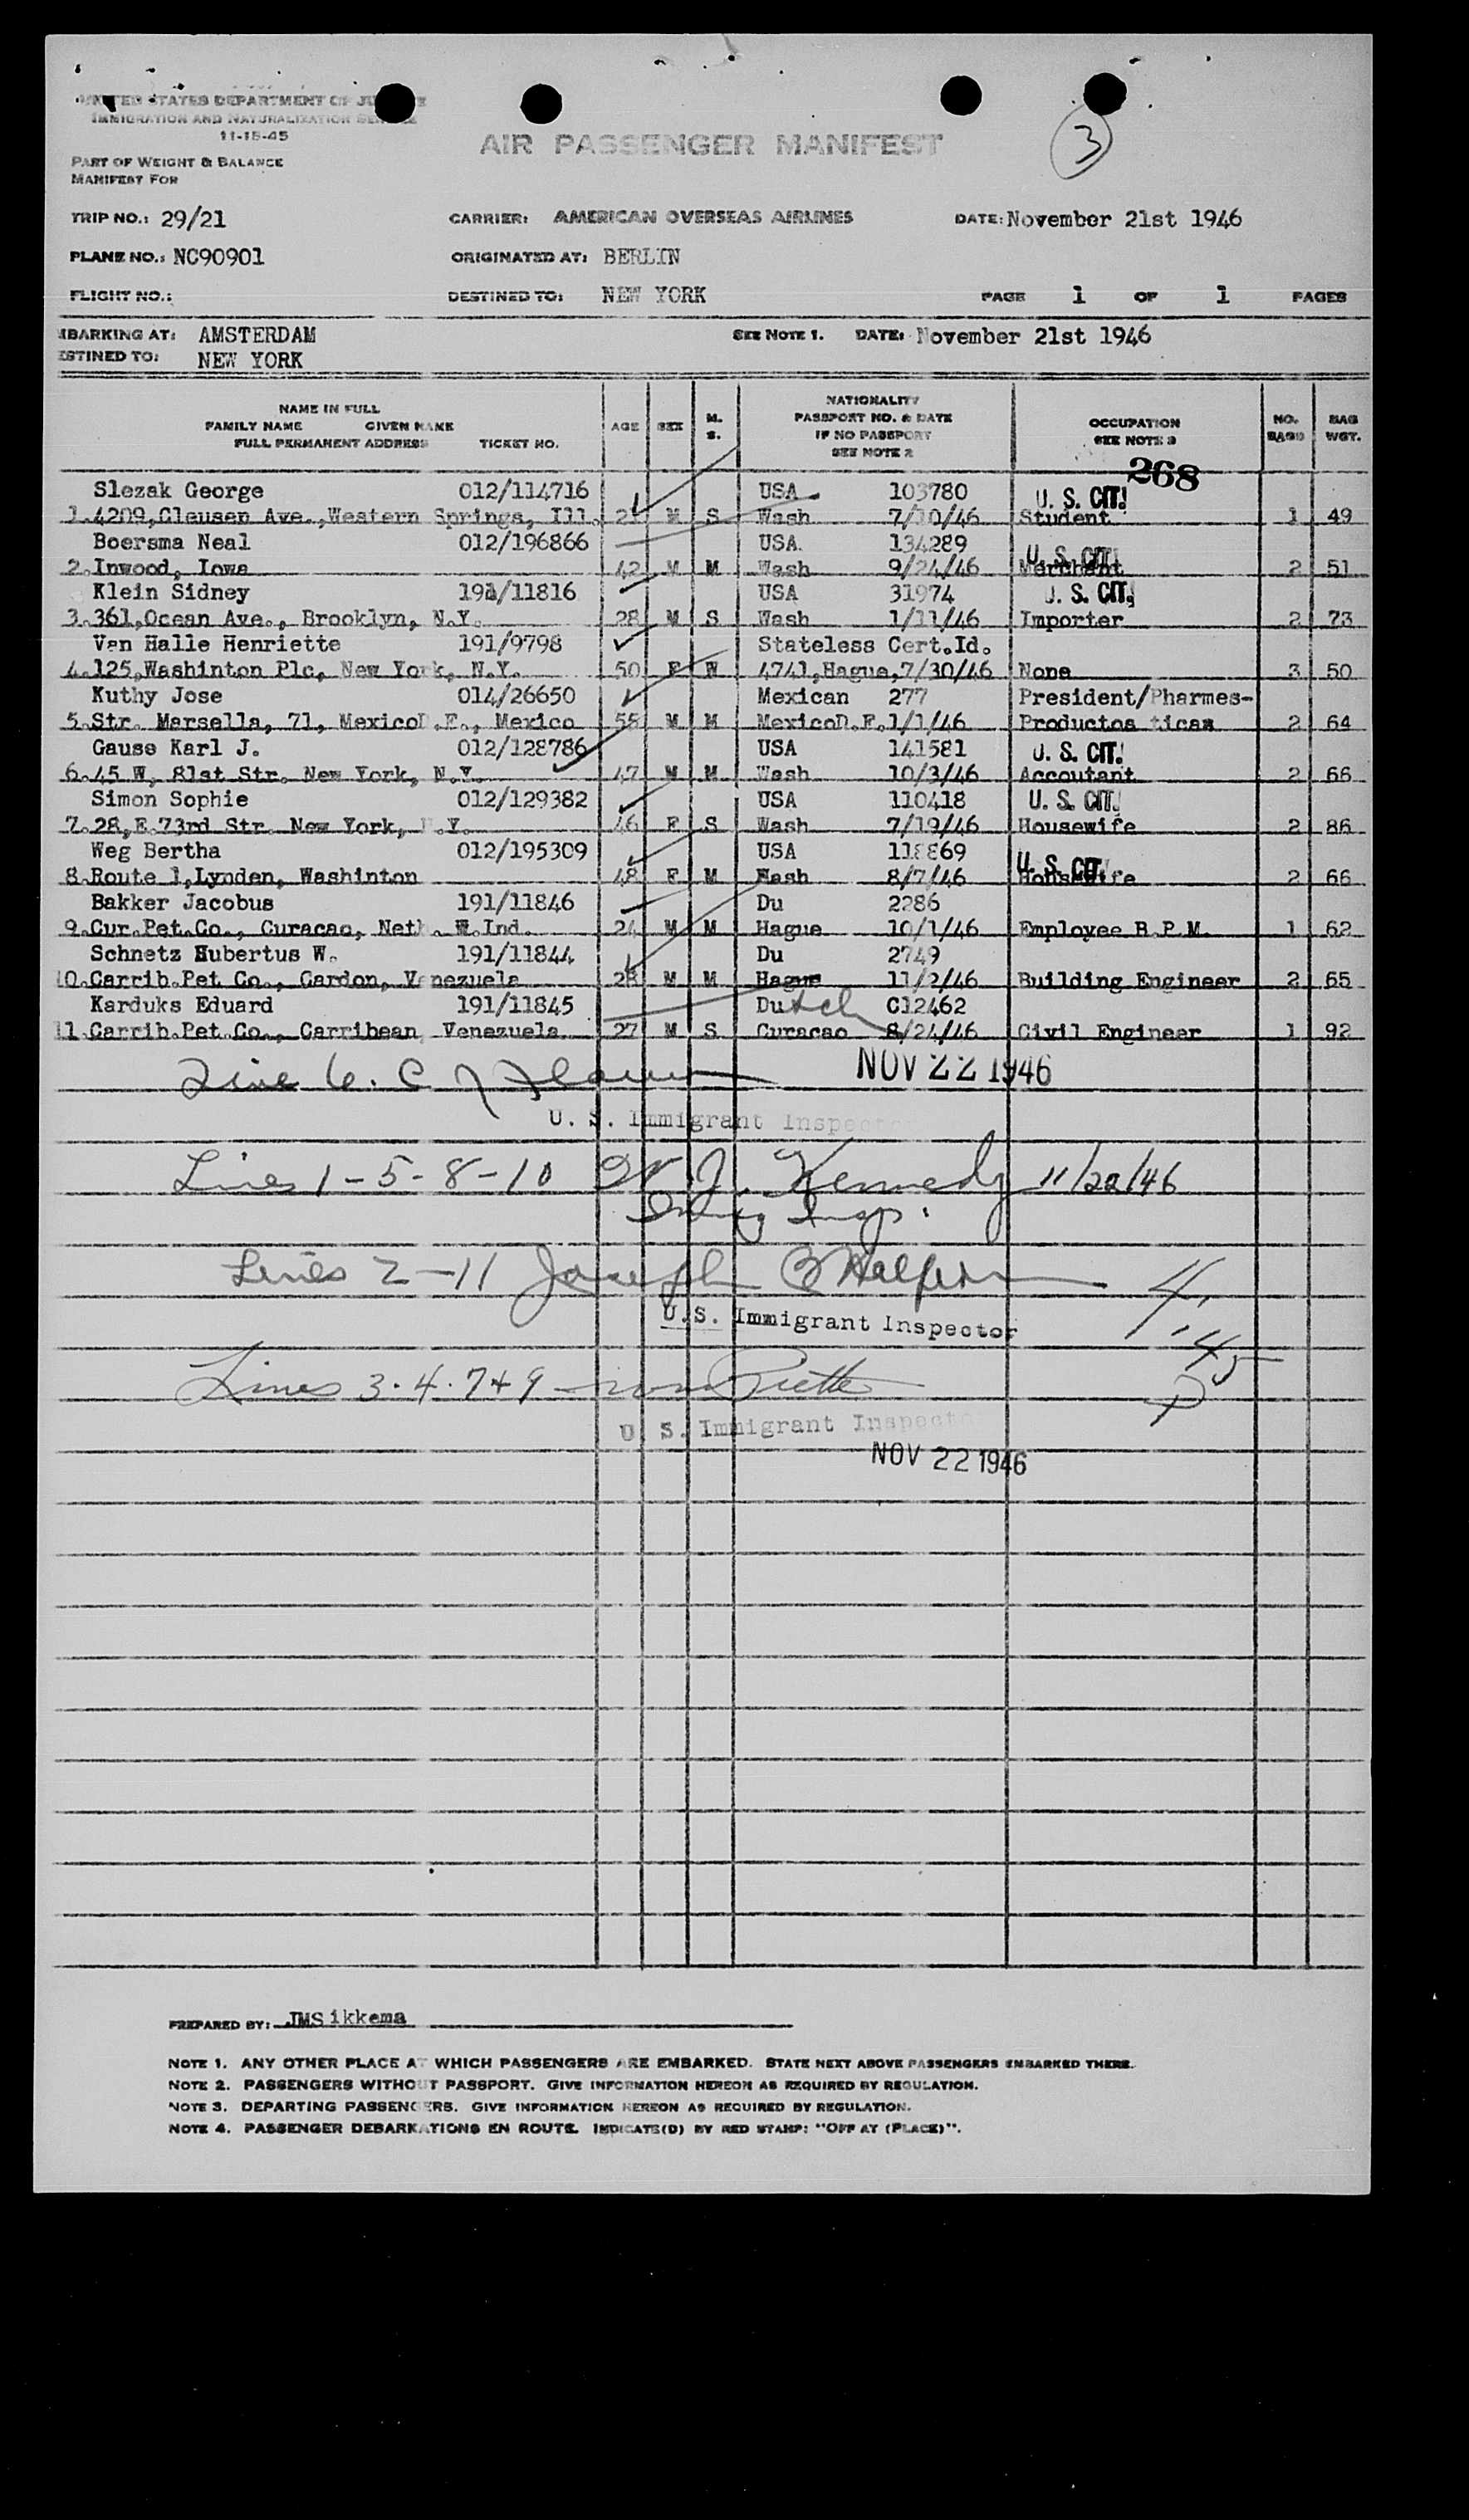 UNITED STATES DEPARTMENT OF JUSTICE
IMMIGRATION AND NATURALIZATION SERVICE
11-15-45
AIR PASSENGER MANIFEST
3
PART OF WEIGHT & BALANCE
MANIFEST FOR
TRIP NO.: 29/21 CARRIER: AMERICAN OVERSEAS AIRLINES DATE: November 21st 1946
PLANE NO.: NC90901 ORIGINATED AT: BERLIN
FLIGHT NO.: DESTINED TO: NEW YORK PAGE 1 OF 1 PAGES
MBARKING AT: AMSTERDAM SEE NOTE 1. DATE: November 21st 1946
ESTINED TO: NEW YORK
NAME IN FULL
FAMILY NAME GIVEN NAME
FULL PERMANENT ADDRESS TICKET NO. AGE SEX M. S. NATIONALITY PASSPORT NO. & DATE IF NO PASSPORT SEE NOTE 2 OCCUPATION SEE NOTE 3 NO. BAGS BAG WGT.
268
Slezak George 012/114716 USA 103780 U. S. CIT.
1.4209,Clausen Ave.,Western Springs, Ill. 21 M S Wash 7/10/46 Student 1 49
Boersma Neal 012/196866 USA. 134289 U. S. CIT.
2.Inwood, Iowa 42 M M Wash 9/24/46 Merchant 2 51
Klein Sidney 191/11816 USA 31974 U. S. CIT.
3.361,Ocean Ave., Brooklyn, N.Y. 28 M S Wash 1/11/46 Importer 2 73
Van Halle Henriette 191/9798 Stateless Cert.Id.
4.125,Washinton Plc, New York, N.Y. 50 F W 4741,Hague,7/30/46 None 3 50
Kuthy Jose 014/26650 Mexican 277 President/Pharmes-
5.Str. Marsella, 71, MexicoD.F., Mexico 58 M M MexicoD.F.1/1/46 Productos ticas 2 64
Gause Karl J. 012/128786 USA 141581 U. S. CIT.
6.45 W, 81st Str. New York, N.Y. 47 M M Wash 10/3/46 Accoutant 2 66
Simon Sophie 012/129382 USA 110418 U. S. CIT.
7.28,E.73rd Str. New York, N.Y. 46 F S Wash 7/19/46 Housewife 2 86
Weg Bertha 012/195309 USA 118869 U. S. CIT.
8.Route 1,Lynden, Washinton 48 F M Wash 8/7/46 Housewife 2 66
Bakker Jacobus 191/11846 Du 2286
9.Cur.Pet.Co., Curacao, Neth. W.Ind. 24 M M Hague 10/1/46 Employee B.P.M. 1 62
Schnetz Hubertus W. 191/11844 Du 2749
10.Carrib.Pet Co., Cardon, Venezuela 28 M M Hague 11/2/46 Building Engineer 2 65
Karduks Eduard 191/11845 Dutch C12462
11.Carrib.Pet.Co., Carribean, Venezuela 27 M S Curacao 8/24/46 Civil Engineer 1 92
Line 6. NOV 22 1946
U. S. Immigrant Inspector
Lines 1-5-8-10 W. J. Kennedy 11/22/46
Immig Insp.
Lines 2-11 Joseph B Halpern
U.S. Immigrant Inspector
4.45
P
Lines 3.4.7+9
U. S. Immigrant Inspector
NOV 22 1946
PREPARED BY: JMSikkema
NOTE 1. ANY OTHER PLACE AT WHICH PASSENGERS ARE EMBARKED. STATE NEXT ABOVE PASSENGERS EMBARKED THERE.
NOTE 2. PASSENGERS WITHOUT PASSPORT. GIVE INFORMATION HEREON AS REQUIRED BY REGULATION.
NOTE 3. DEPARTING PASSENGERS. GIVE INFORMATION HEREON AS REQUIRED BY REGULATION.
NOTE 4. PASSENGER DEBARKATIONS EN ROUTE. INDICATE(D) BY RED STAMP: "OFF AT (PLACE)".